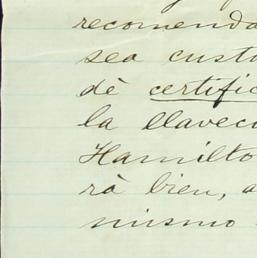 recomenda
sea custo
dè certific
la llaveci
Hamilto
rà bien, a
mismo